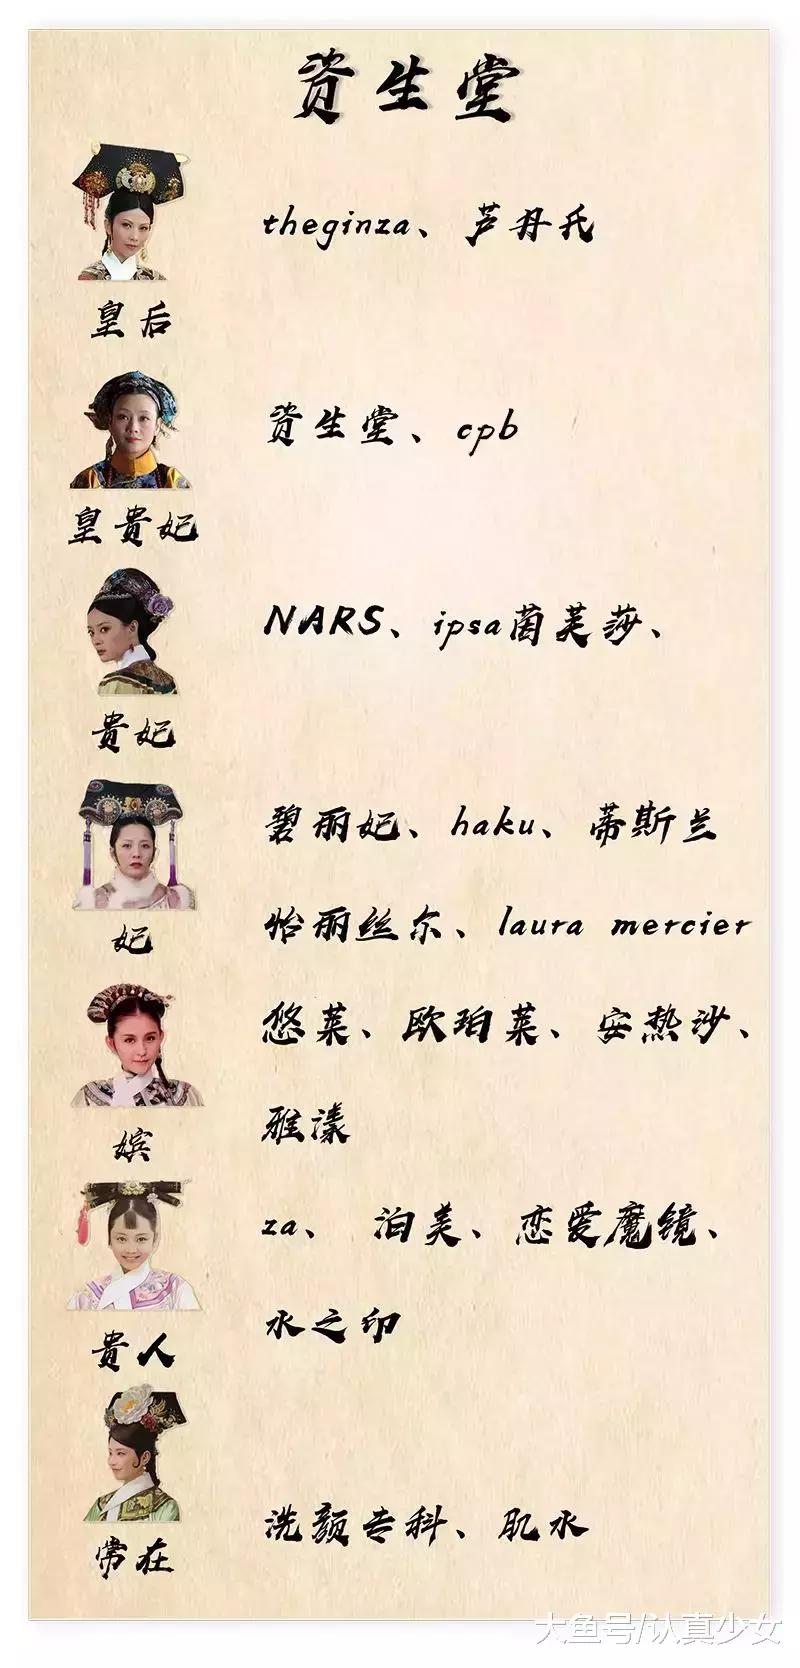 资生堂
theginza、芦丹氏
皇后
资生堂、cpb
皇贵妃
NARS、ipsa茵芙莎、
贵妃
碧丽妃、haku、蒂斯兰
怡丽丝尔、laura mercier
妃
悠莱、欧珀莱、安热沙、
雅漾
嫔
za、 泊美、恋爱魔镜、
水之印
贵人
洗颜专科、肌水
常在
大鱼号/认真少女